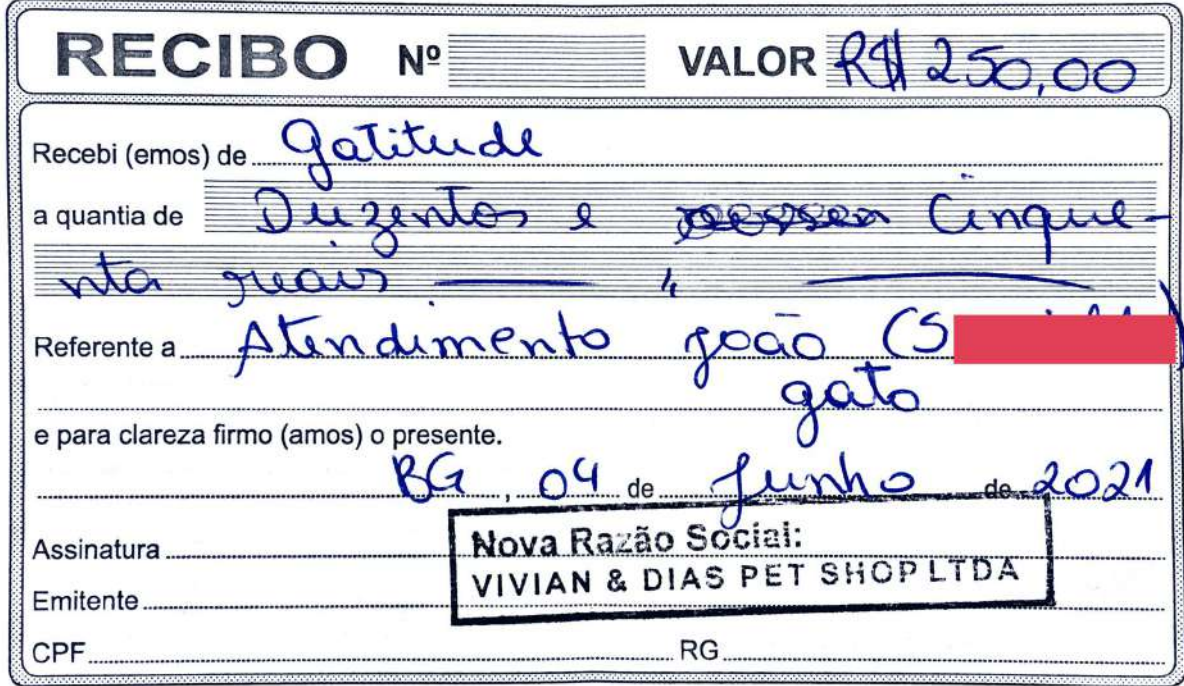 RECIBO Nº VALOR R$ 250,00
Recebi (emos) de Gatitude
a quantia de Duzentos e Cinque-
nta reais
Referente a Atendimento João (S
gato
e para clareza firmo (amos) o presente.
BG, 04 de Junho de 2021
Assinatura
Nova Razão Social:
VIVIAN & DIAS PET SHOP LTDA
Emitente
CPF RG